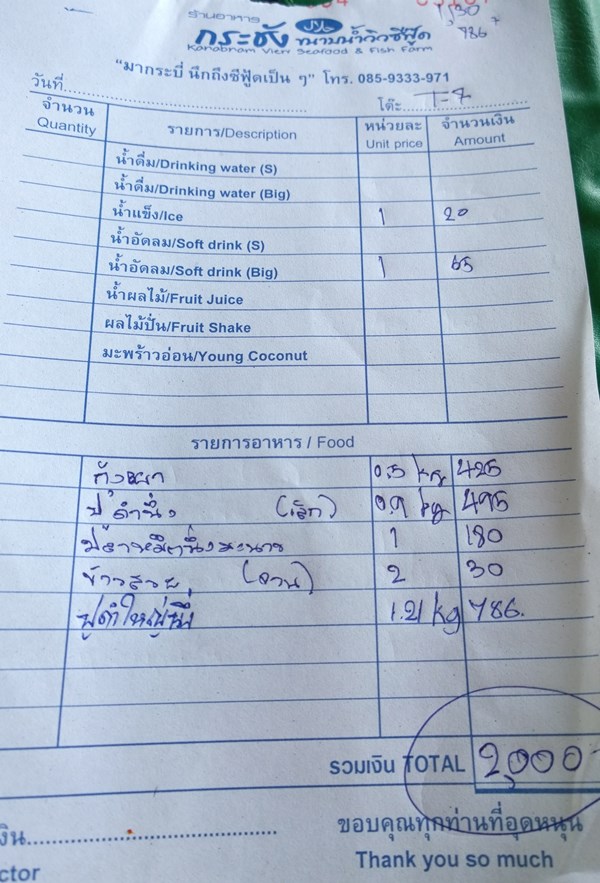 ร้านอาหาร
กระชัง ขนาบน้ำวิวซีฟู้ด
Kanabnam View Seafood & Fish Farm
786
"มากระบี่ นึกถึงซีฟู้ดเป็น ๆ" โทร. 085-9333-971
วันที่ โต๊ะ T-7
จำนวน Quantity รายการ/Description หน่วยละ Unit price จำนวนเงิน Amount
น้ำดื่ม/Drinking water (S)
น้ำดื่ม/Drinking water (Big)
น้ำแข็ง/Ice 1 20
น้ำอัดลม/Soft drink (S)
น้ำอัดลม/Soft drink (Big) 1 65
น้ำผลไม้/Fruit Juice
ผลไม้ปั่น/Fruit Shake
มะพร้าวอ่อน/Young Coconut
รายการอาหาร / Food
กุ้งเผา 0.5 kg 425
ปูดำนึ่ง (เล็ก) 0.9 kg 495
ปลาหมึกนึ่งมะนาว 1 180
ข้าวสวย (จาน) 2 30
ปูดำใหญ่นึ่ง 1.21 kg 786.
รวมเงิน TOTAL 2,000
ขอบคุณทุกท่านที่อุดหนุน
Thank you so much